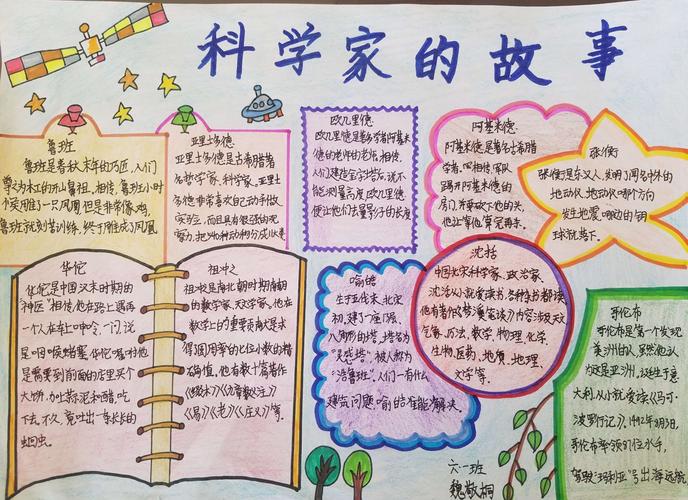 科学家的故事
鲁班
鲁班是春秋末年的巧匠,人们
尊为木工的开山鼻祖,相传,鲁班小时
个奖雕了一只凤凰,但是非常像鸡,
鲁班就刻苦训练,终于雕成了凤凰
亚里士多德
亚里士多德是古希腊著
名哲学家、科学家。亚里士
多德非常喜欢自己动手做
实验,而且有很强的观
察力,把540种动物分成8大类
欧几里德
欧几里德是数学者阿基米
德的老师的老师,相传,
人们建造金字塔后,说不
能测量高度,欧几里德
便让他们去量影子的长度
阿基米德
阿基米德是著名古希腊
学者,相传,罗马兵
踢开阿基米德的
房门,并要砍下他的头,
他让等他算完再杀。
张衡
张衡是东汉人,发明了闻名中外的
地动仪,地动仪哪个方向
发生地震,哪边的铜
球就落下。
华佗
华佗是中国汉末时期的
“神医”相传,他在路上遇再
一个人在车上呻吟、一问,说
是咽喉堵塞,华佗嘱咐他
是需要到前面的店里买个
大饼,加上蒜泥和醋,吃
下去,不久,竟吐出一条长长的
蛔虫。
祖冲之
祖冲是南北朝时期南朝
的数学家、天文学家,他在
数学上的重要贡献是求
得圆周率的七位小数的精
确值,他有数十篇著作
《缀术》《九章数义注》
《易》《老》《庄义》等。
喻皓
生于五代末、北宋
初,建了一座八层、
八角形的塔,塔名为
“灵感塔”,被人数为
“活鲁班”。人们一有什么
建筑问题,喻皓准能解决。
沈括
中国北宋科学家、政治家、
沈括从小就爱读书,各种杂书都读,
他有著作《梦溪笔谈》内容涉及天文
气象、历法、数学、物理、化学
生物、医药、地质、地理、
文学等。
哥伦布
哥伦布是第一个发现
美洲的人,虽然他认
为这是亚洲,诞生于意
大利,从小就爱读《马可·
波罗行记》。1492年8月3日,
哥伦布率领87位水手,
驾驶“玛利亚”号出海远航
六一班
魏敬桐